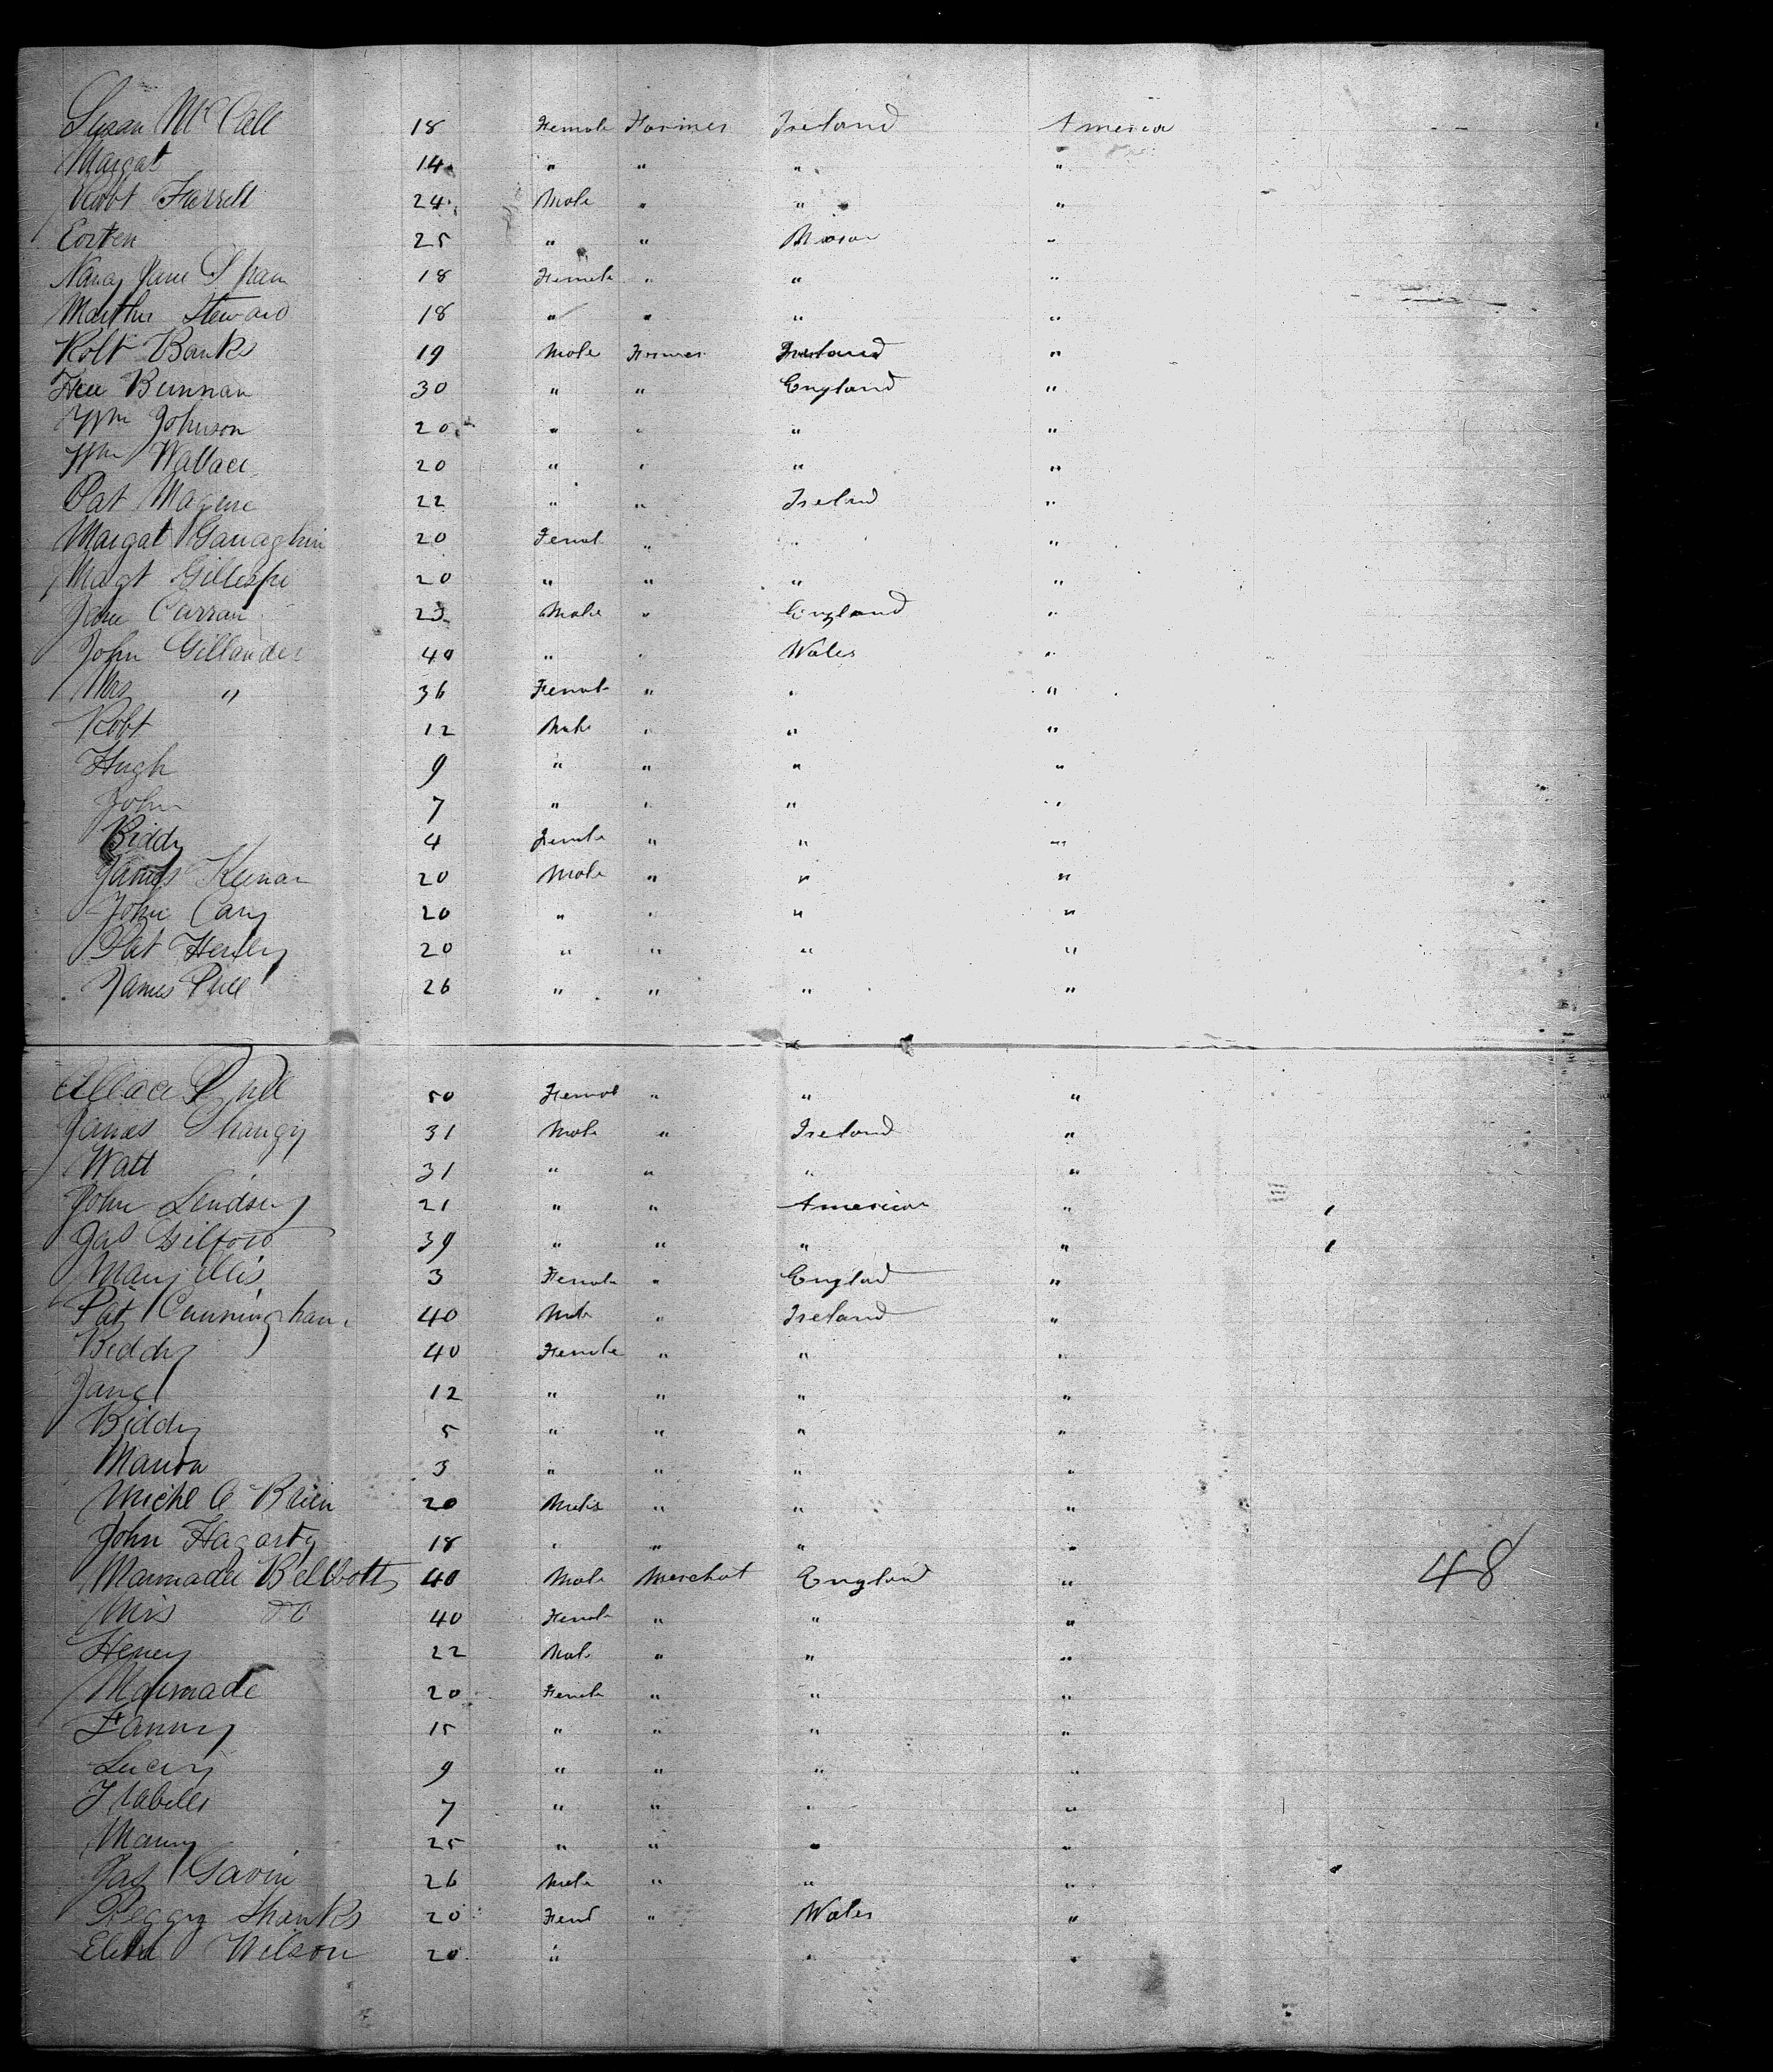 Susan McCall 18 Female Farmer Ireland America
Margat 14 " " " "
Robt Farrell 24 Male " " "
25 " " "
Nancy Jane 18 Female " " "
Martha Steward 18 " " " "
Robt Banks 19 Male Farmer Ireland "
30 " " England "
Wm Johnson 20 " " " "
Wm Wallace 20 " " " "
Pat Maguire 22 " " Irelnd "
Margat 20 Femal " " "
Magt Gillespie 20 " " " "
Jane Curran 23 Male " England "
John Gillander 40 " " Wales "
Mrs " 36 Femal " " "
Robt 12 Male " " "
Hugh 9 " " " "
John 7 " " " "
Biddy 4 Female " " "
James Keenan 20 Male " " "
John Cary 20 " " " "
Pat Henley 20 " " " "
James Phil 26 " " " "
50 Femal " " "
James 31 Male " Ireland "
Watt 31 " " " "
John Lindsey 21 " " American "
Jas Gilford 39 " " " "
Mary Ellis 3 Female " Englad "
Pat Cunningham 40 Male " Ireland "
Biddy 40 Female " " "
Jane 12 " " " "
Biddy 5 " " " "
Maria 3 " " " "
Michl O Brien 20 Male " " "
John Hagarty 18 " " " "
Marmaduke 40 Male Merchat England " 48
Mrs do 40 Female " " "
Henry 22 Male " " "
Marmade 20 Female " " "
Fanny 15 " " " "
Lucy 9 " " " "
Isabella 7 " " " "
Manny 25 " " " "
Jas Gavin 26 Male " " "
Peggy Shanks 20 Feml " Wales "
Eliza Wilson 20 " " "